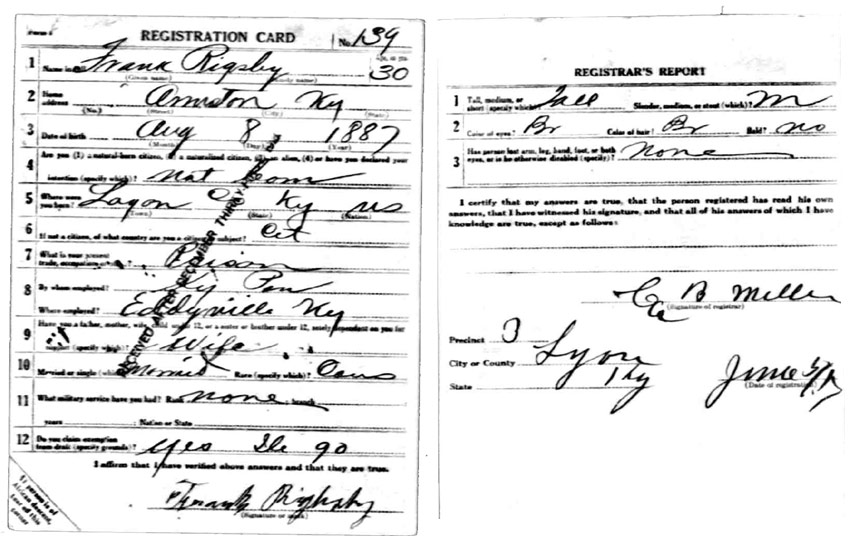 Form 1
REGISTRATION CARD No. 139
1 Name in full Frank Rigsby 30
(Given name) (Family name)
2 Home address Ky
(No.) (Street) (City) (State)
3 Date of birth Aug 8 1887
(Month) (Day) (Year)
4 Are you (1) a natural-born citizen, (2) a naturalized citizen, (3) an alien, (4) or have you declared your
intention (specify which)? Nat Born
5 Where were you born? Ky US
(Town) (State) (Nation)
6 If not a citizen, of what country are you a citizen or subject? Cit
7 What is your present trade, occupation
8 By whom employed? Ky Pen
Where employed? Eddyville Ky
9 Have you a father, mother, wife, child under 12, or a sister or brother under 12, solely dependent on you for
support (specify which)? Wife
10 Married or single (which)? Married Race (specify which)? Caus
11 What military service have you had? Rank none ; branch
years ; Nation or State
12 Do you claim exemption from draft (specify grounds)? yes go
I affirm that I have verified above answers and that they are true.
Frank Rigsby
(Signature or mark)
If person is of
African descent,
tear off this
corner
RECEIVED AFTER DECEMBER THIRTY
REGISTRAR'S REPORT
1 Tall, medium, or short (specify which)? Tall Slender, medium, or stout (which)? M
2 Color of eyes? Br Color of hair? Br Bald? no
3 Has person lost arm, leg, hand, foot, or both
eyes, or is he otherwise disabled (specify)? none
I certify that my answers are true, that the person registered has read his own
answers, that I have witnessed his signature, and that all of his answers of which I have
knowledge are true, except as follows:
B Miller
(Signature of registrar)
Precinct 3
City or County Lyon
State Ky June 5/17
(Date of registration)